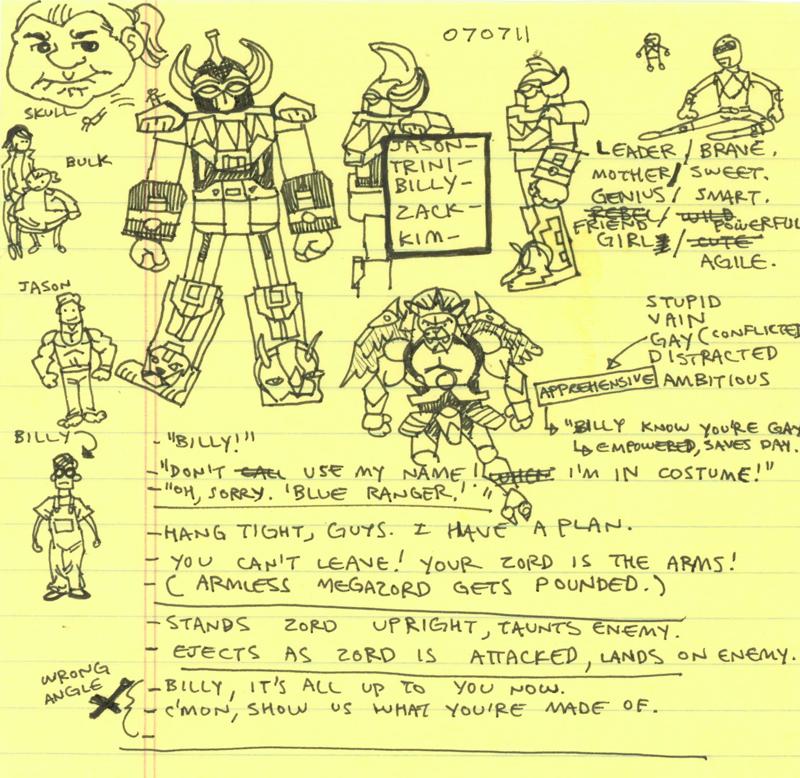 070711
SKULL
BULK
JASON-
TRINI-
BILLY-
ZACK-
KIM-
LEADER / BRAVE.
MOTHER / SWEET.
GENIUS / SMART.
REBEL / WILD
FRIEND / POWERFUL
GIRL / CUTE
AGILE.
JASON
STUPID
VAIN
GAY (CONFLICTED
DISTRACTED
APPREHENSIVE AMBITIOUS
"BILLY KNOW YOU'RE GAY
↳ EMPOWERED, SAVES DAY.
BILLY
- "BILLY!"
- "DON'T CALL USE MY NAME! WHEN I'M IN COSTUME!"
- "OH, SORRY. 'BLUE RANGER.'"
- HANG TIGHT, GUYS. I HAVE A PLAN.
- YOU CAN'T LEAVE! YOUR ZORD IS THE ARMS!
- (ARMLESS MEGAZORD GETS POUNDED.)
- STANDS ZORD UPRIGHT, TAUNTS ENEMY.
- EJECTS AS ZORD IS ATTACKED, LANDS ON ENEMY.
WRONG
ANGLE
- BILLY, IT'S ALL UP TO YOU NOW.
- C'MON, SHOW US WHAT YOU'RE MADE OF.
-